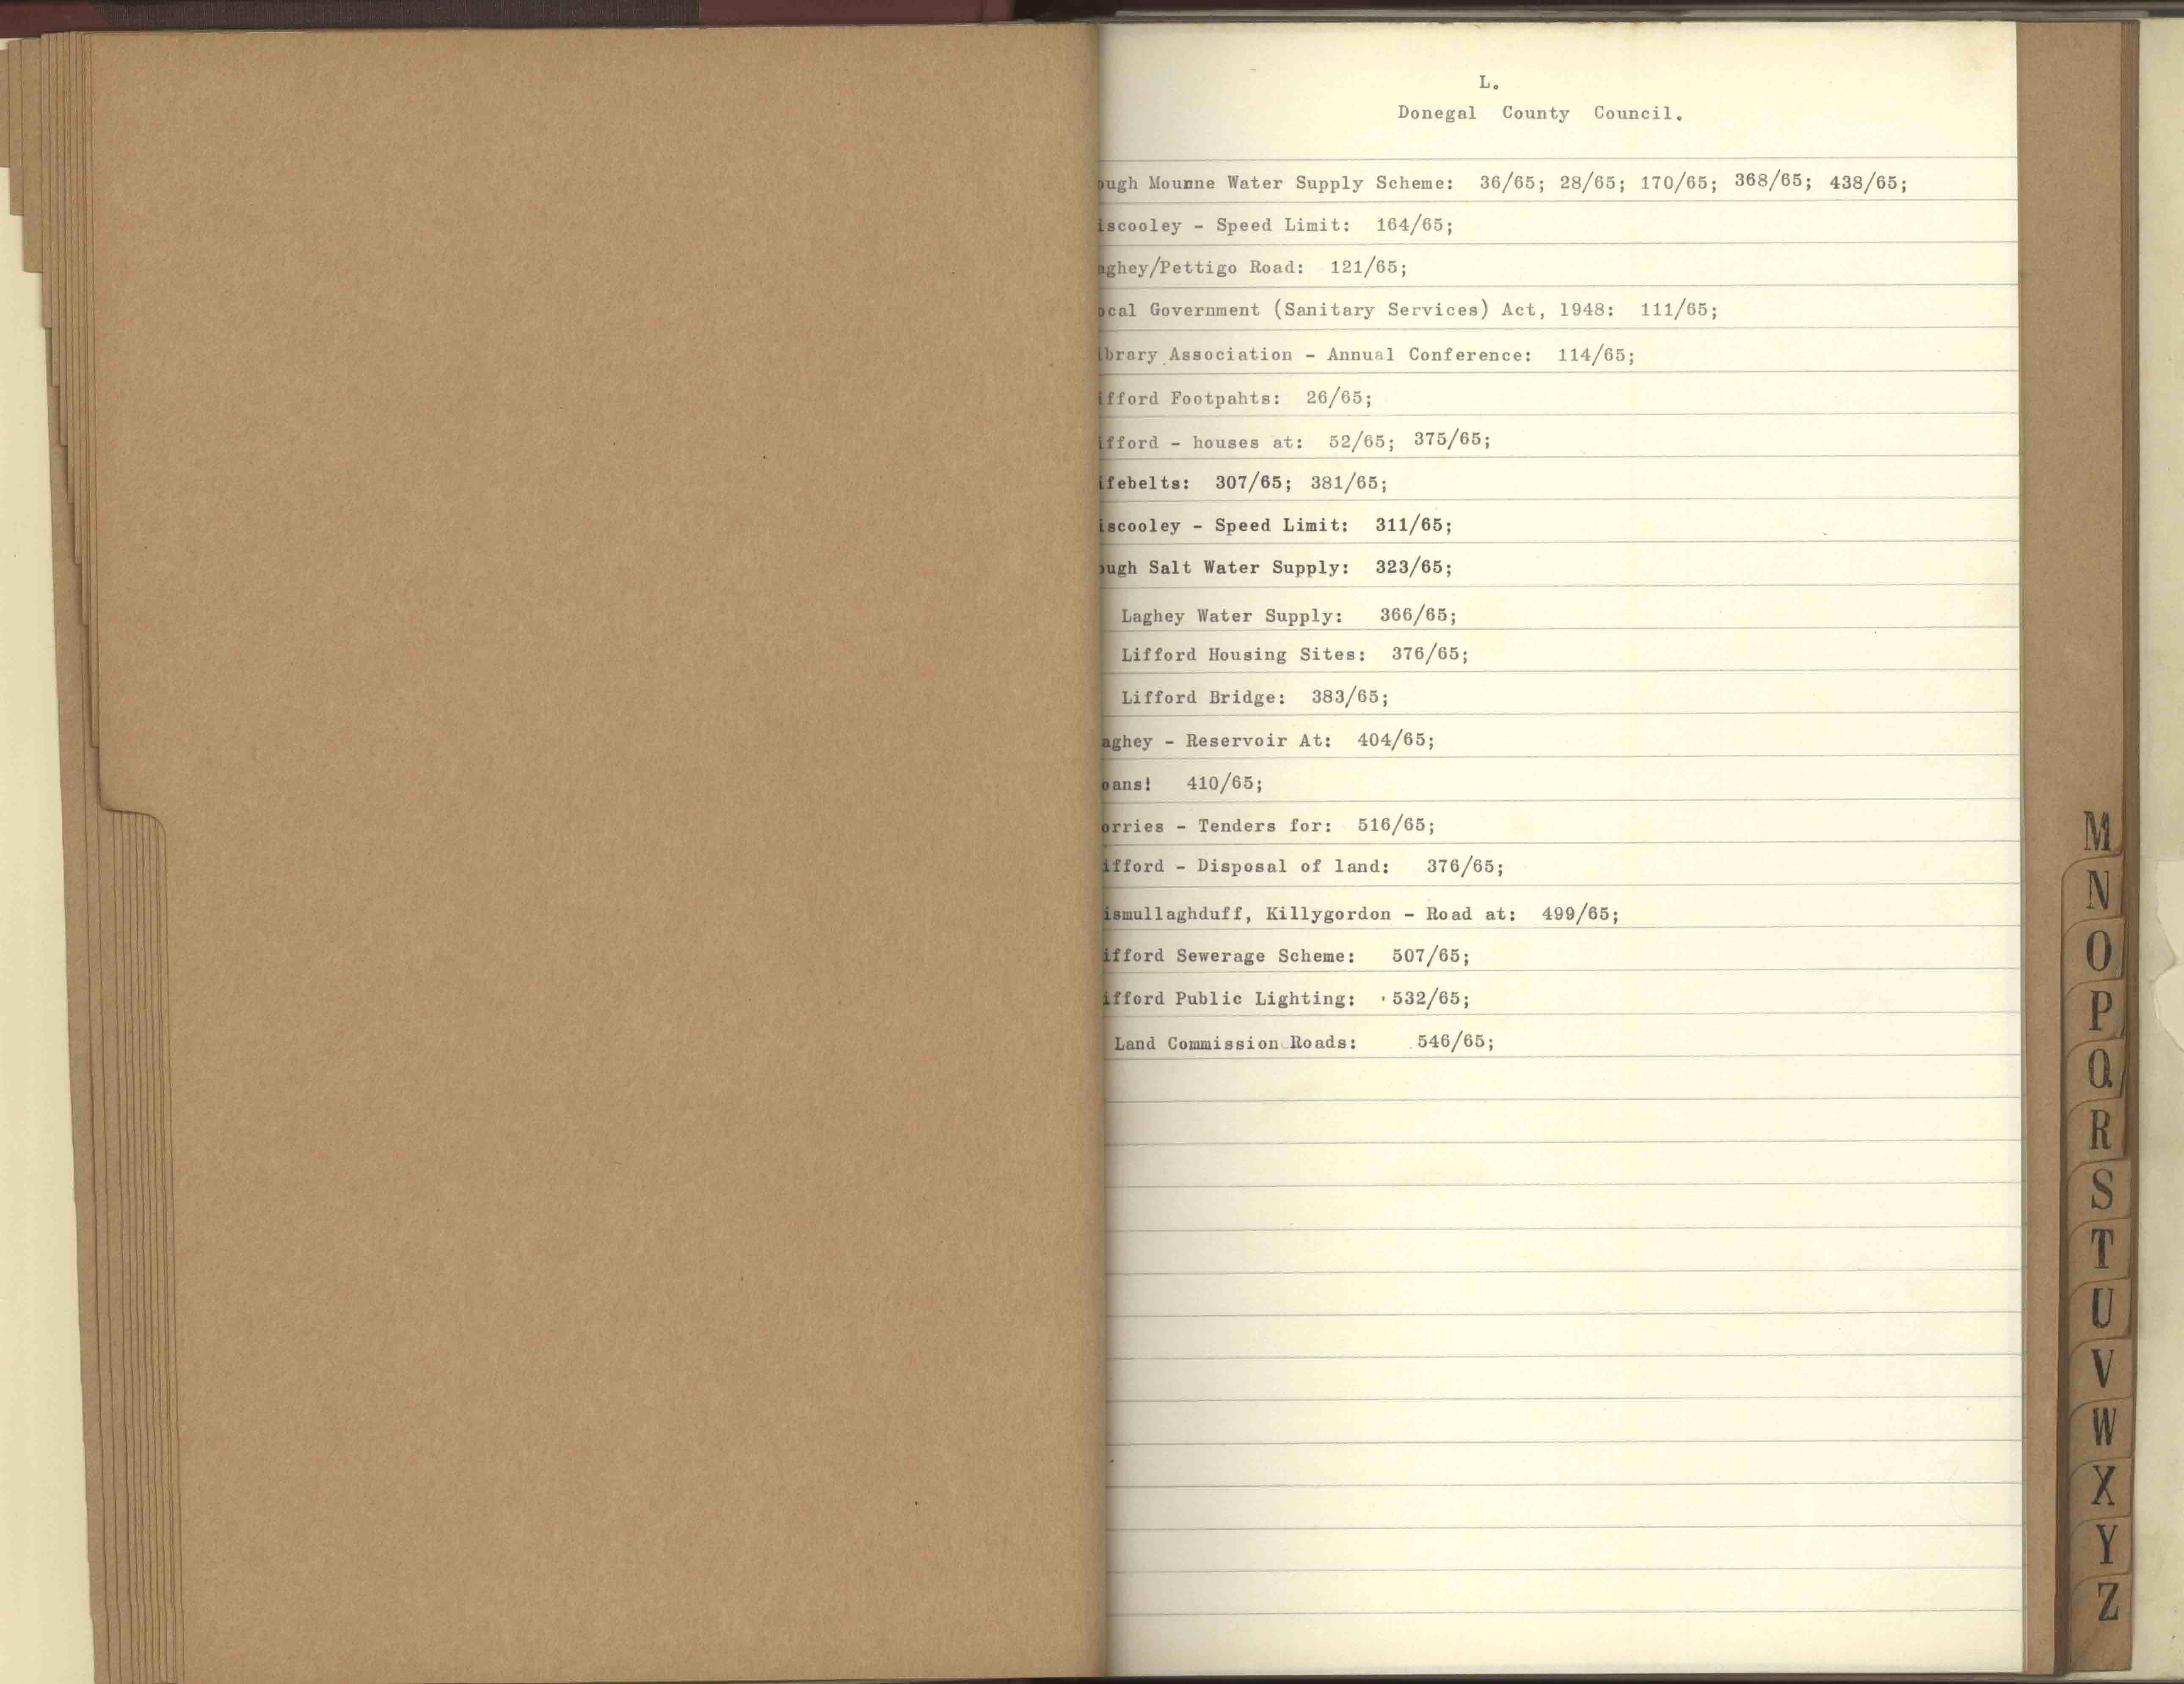 L.
Donegal County Council.
ough Mounne Water Supply Scheme: 36/65; 28/65; 170/65; 368/65; 438/65;
iscooley - Speed Limit: 164/65;
aghey/Pettigo Road: 121/65;
ocal Government (Sanitary Services) Act, 1948: 111/65;
ibrary Association - Annual Conference: 114/65;
ifford Footpahts: 26/65;
ifford - houses at: 52/65; 375/65;
ifebelts: 307/65; 381/65;
iscooley - Speed Limit: 311/65;
ough Salt Water Supply: 323/65;
Laghey Water Supply: 366/65;
Lifford Housing Sites: 376/65;
Lifford Bridge: 383/65;
aghey - Reservoir At: 404/65;
oans! 410/65;
orries - Tenders for: 516/65;
ifford - Disposal of land: 376/65;
ismullaghduff, Killygordon - Road at: 499/65;
ifford Sewerage Scheme: 507/65;
ifford Public Lighting: 532/65;
Land Commission Roads: 546/65;
M
N
O
P
Q
R
S
T
U
V
W
X
Y
Z